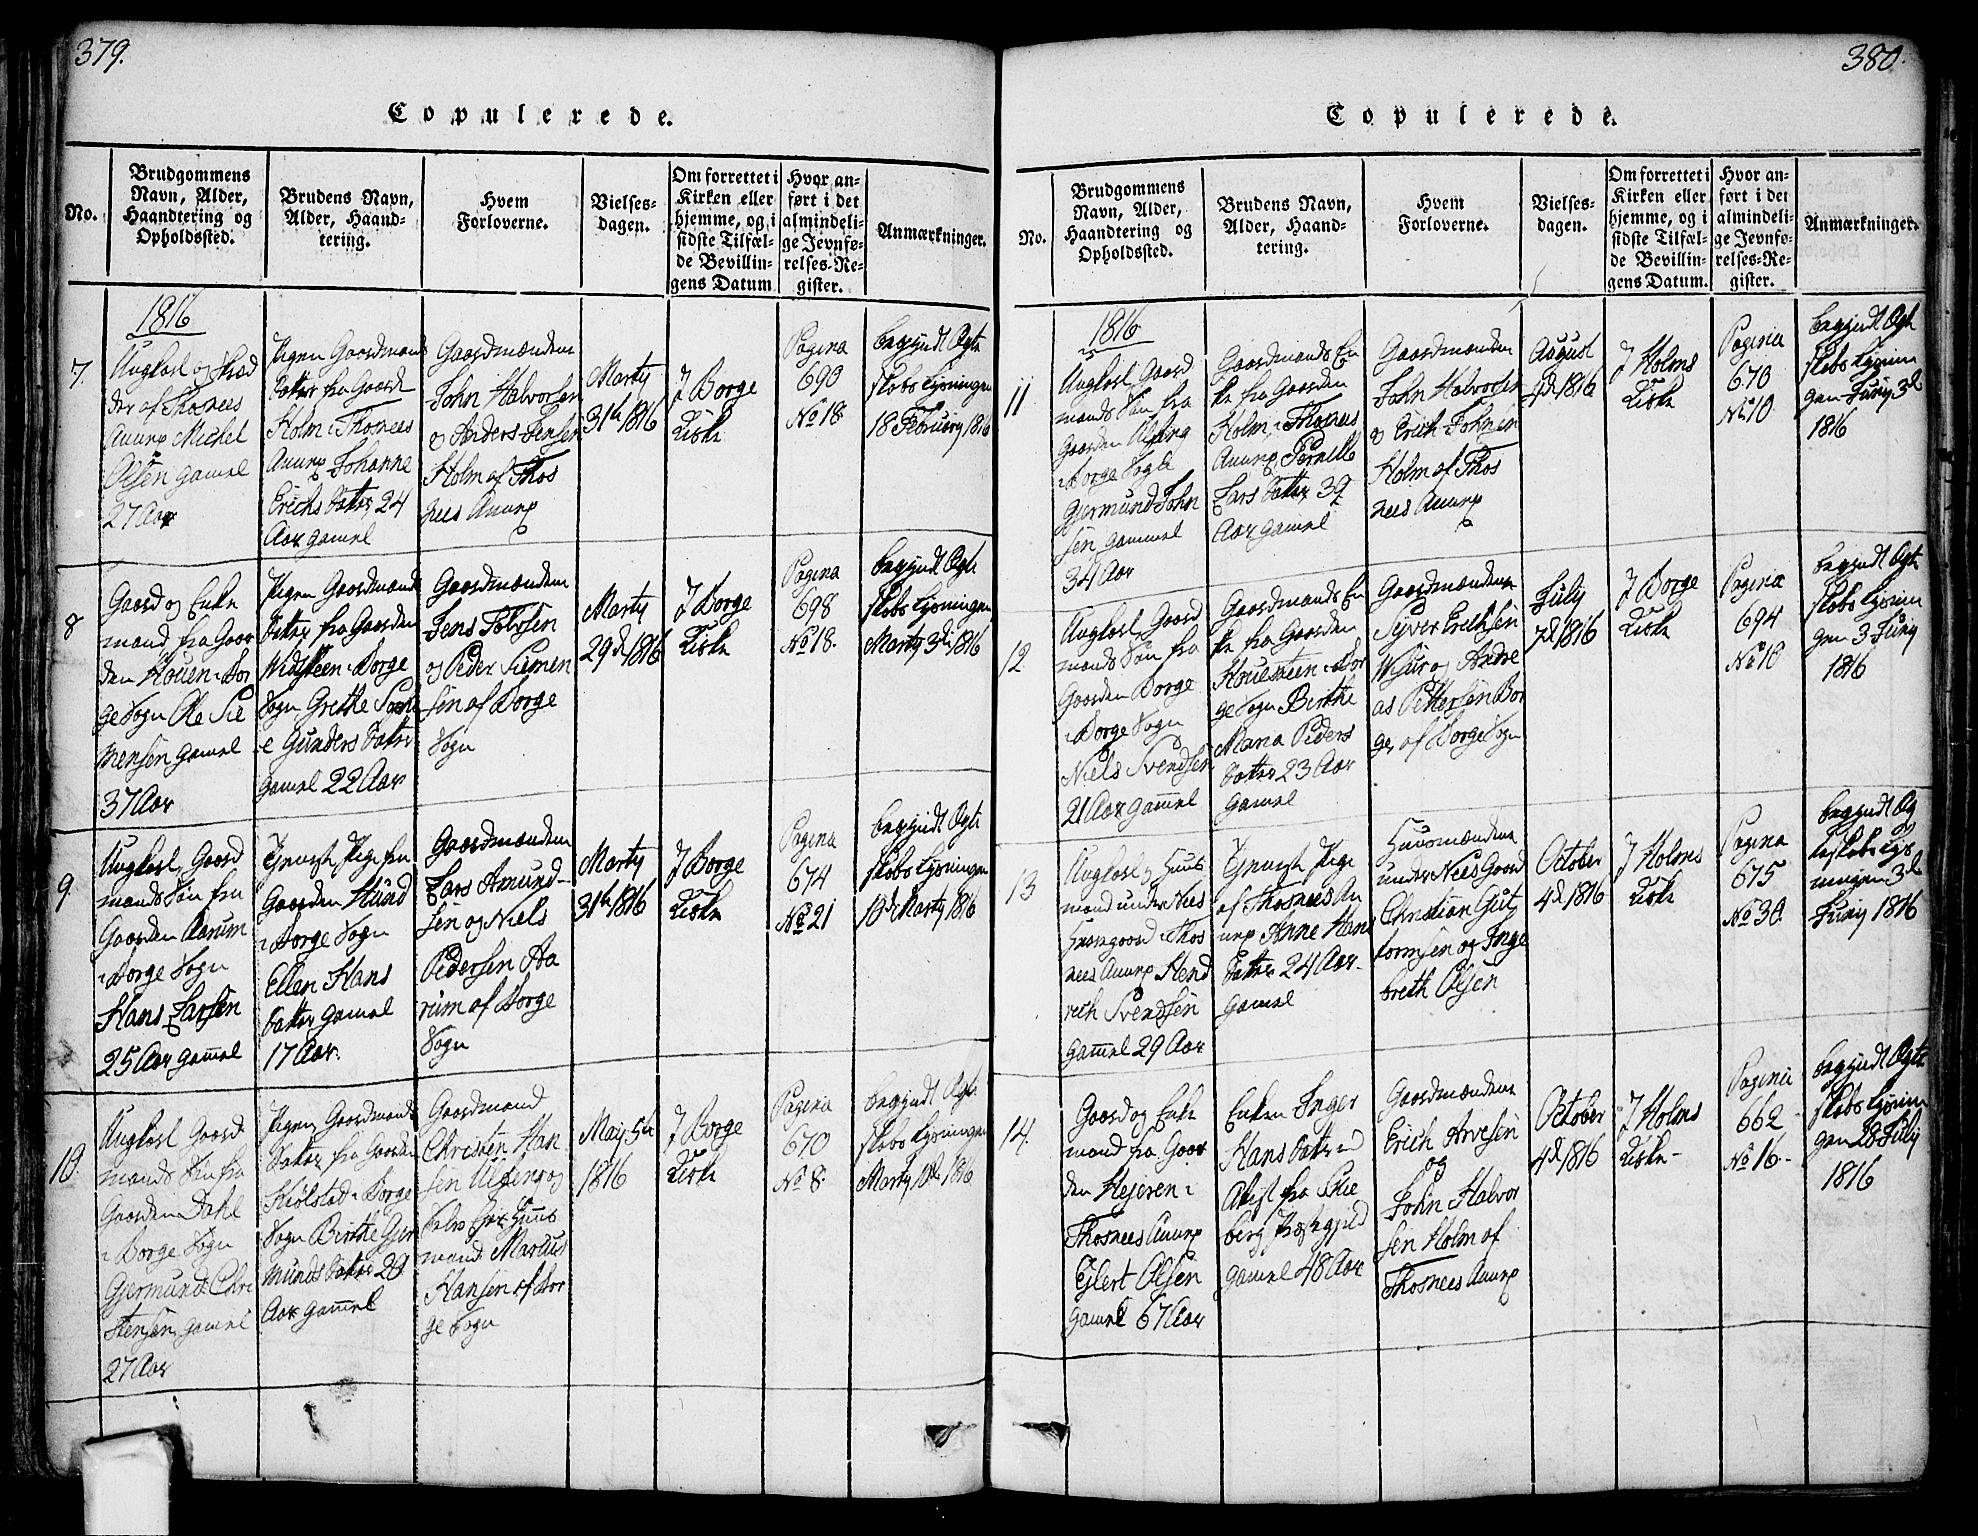 379.
Copulerede.
No.
Brudgommens
Navn, Alder,
Haandtering og
Opholdssted.
Brudens Navn,
Alder, Haand-
tering.
Hvem
Forloverne.
Vielses-
dagen.
Om forrettet i
Kirken eller
hjemme, og i
sidste Tilfæl-
de Bevillin-
gens Datum
Hvor an-
ført i det
almindeli-
ge Jevnfø-
relses-Re-
gister.
Anmærkninger.
7.
1816
Ungkarl og
der af Thosnees
Anurx Michel
Olsen gamel
27 Aar
Pigen Gaardmands
Datter fra Gaarde
Holm i Thosnees
Anurx Johanne
Erichs Datter 24
Aar gamel
Gaardmændene
John Halvorsen
og Anders Jensen
Holm af Thos
nees Anurx
Marty
31th 1816
I Borge
Kirke
Pagina
690
No 18
begyndt Ægte
skabs Lysningen
18 February 1816
8
Gaard og Enke
mand fra Gaar
den Houen i Bor
ge Sogn Ole Sie
mensen gamel
37 Aar
Pigen Gaardmands
Datter fra Gaarden
Nidsteen i Borge
Sogn Grethe Soph
e Gunders Datter
gamel 22 Aar
Gaardmændene
Jens Tolvsen
og Peder Siemen
sen af Borge
Sogn
Marty
29d 1816
I Borge
Kirke
Pagina
698
No 18.
begyndt Ægte
skabs Lysningen
Marty 3d 1816
9
Ungkarl Gaard
mands Søn fra
Gaarden Aarum
i Borge Sogn
Hans Larsen
25 Aar gamel
Tjenest Pige fra
Gaarden Hund
i Borge Sogn
Ellen Hans
Datter gamel
17 Aar.
Gaardmændene
Lars Amund-
sen og Niels
Pedersen Aa
rum af Borge
Sogn
Marty
31th 1816
I Borge
Kirke
Pagina
674
No 21
begyndt Ægte
skabs Lysningen
10de Marty 1816
10
Ungkarl Gaard
mands Søn fra
Gaarden Dahl
i Borge Sogn
Gjermund Chri
stensen gamel
27 Aar
Pigen Gaardmands
Datter fra Gaarden
Kiölstad i Borge
Sogn Birthe Gjer
munds Datter 20
Aar gamel
Gaardmand
Christen Han
sen
mand Marcus
Hansen af Bor
ge Sogn
May 5te
1816
I Borge
Kirke
Pagina
670
No 8.
begyndt Ægte
skabs Lysningen
Marty 10de 1816
380.
Copulerede.
No.
Brudgommens
Navn, Alder,
Haandtering og
Opholdssted.
Brudens Navn,
Alder, Haand-
tering.
Hvem
Forloverne.
Vielses-
dagen.
Om forrettet i
Kirken eller
hjemme, og i
sidste Tilfæl-
de Bevillin-
gens Datum.
Hvor an-
ført i det
almindeli-
ge Jevnfø-
relses-Re-
gister.
Anmærkninger.
11
1816
Ungkarl Gaard
mands Søn fra
Gaarden
i Borge Sogn
Gjermund John
sen gammel
34 Aar
Gaardmands En
ke fra Gaarden
Holm i Thosnes
Anurx Pernille
Lars Datter 39
Aar gamel
Gaardmænden
John Halvorsen
og Erich Johnsen
Holm af Thos
nees Anurx
August
4d 1816
I Holms
Kirke
Pagina
670
No 10
begyndt Ægte
skabs Lysnin
gen Juny 3d
1816
12
Ungkarl Gaard
mands Søn fra
Gaarden Borge
i Borge Sogn
Niels Svendsen
21 Aar gamel
Gaardmands En
ke fra Gaarden
Houesteen i Bor
ge Sogn Birthe
Maria Peders
Datter 23 Aar
gamel
Gaardmændene
Syver Erichsen
og Andre
as Pettersen Bor
ge, af Borge Sogn
July
7d 1816
I Borge
Kirke
Pagina
694
No 10
begyndt Ægte
skabs Lysnin
gen 3 Juny
1816
13
Ungkarl og Huus
mand under Nees
i Thos
nees Anurx Hend
rich Svendsen
gamel 29 Aar
Tjenest Pige
af Thosnees An
urx Anne Hans
Datter 24 Aar
gamel
Huusmændene
under Nees Gaard
Christian Gut
tormsen og Inge
breth Olsen
October
4d 1816
I Holms
Kirke
Pagina
675
No 30
begyndt Æg
teskabs Lys
ningen 3d
Juny 1816
14.
Gaard og Enke
mand fra Gaar
den Hejeren i
Thosnees Anurx
Ejlert Olsen
gamel 67 Aar
Enken Inger
Hans Datter
fra Skie
berg Præstegield
gamel 48 Aar
Gaardmændene
Erich Arvesen
og
John Halvor
sen Holm af
Thosnees Anurx
October
4d 1816
I Holms
Kirke
Pagina
662
No 16.
begyndt Ægte
skabs Lysnin
gen 28 July
1816